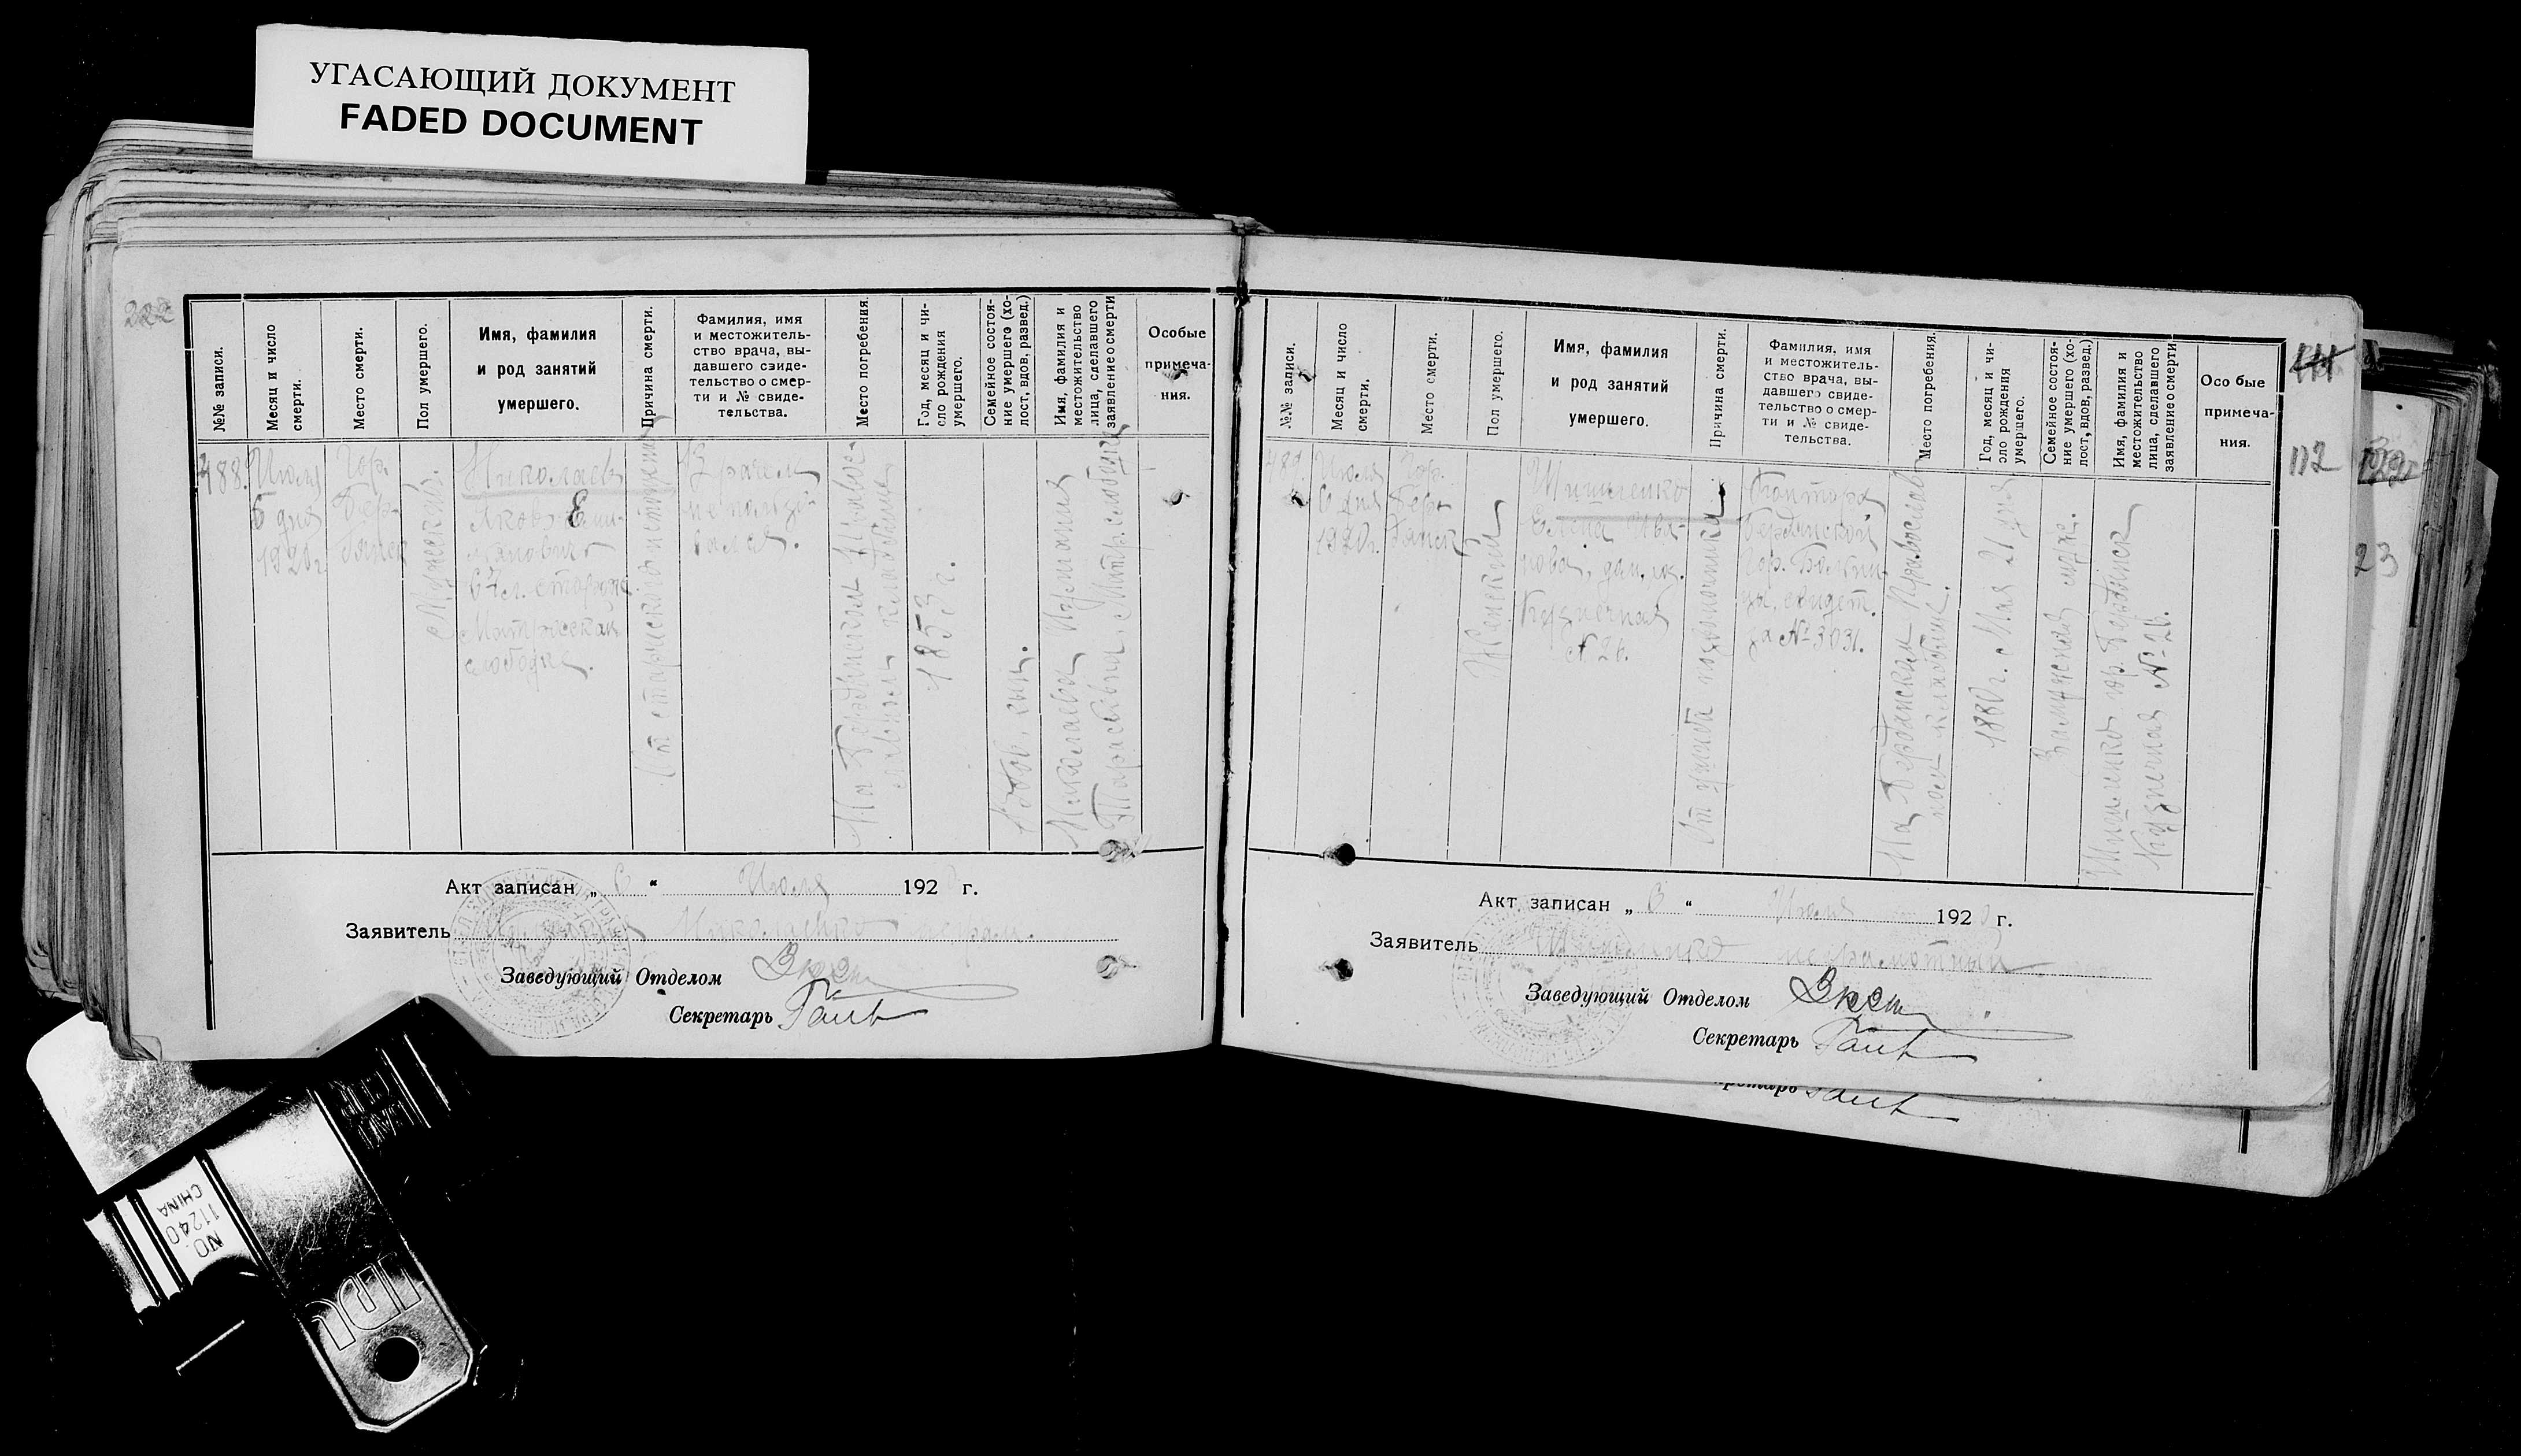 УГАСАЮЩИЙ ДОКУМЕНТ
FADED DOCUMENT
№№ записи.
Месяц и число
смерти.
Место смерти.
Пол умершего.
Имя, фамилия
и род занятий
умершего.
Причина смерти.
Фамилия, имя
и местожитель-
ство врача, вы-
давшего свиде-
тельство о смер-
ти и № свиде-
тельства.
Место погребения.
Год, месяц и чи-
сло рождения
умершего.
Семейное состоя-
ние умершего (хо-
лост, вдов, развед.)
Имя, фамилия и
местожительство
лица, сделавшего
заявление о смерти
Особые
примеча-
ния.
488.
Июля
6 дня
1920 г.
Гор.
Бер-
дянск
Мужеской.
Николаев
Яков Еми-
льянович
67 л. сторож
Матросская
слободка.
От старческого истощения
Врачем
не пользо-
вался.
На Бердянском Правос-
лавном кладбище
1853 г.
Вдов.
Николаева
Матр. слободка
Акт записан „ 6 “ Июля 192 г.
Заявитель Николаенко
Заведующий Отделом
Секретарь
№№ записи.
Месяц и число
смерти.
Место смерти.
Пол умершего.
Имя, фамилия
и род занятий
умершего.
Причина смерти.
Фамилия, имя
и местожитель-
ство врача, вы-
давшего свиде-
тельство о смер-
ти и № свиде-
тельства.
Место погребения.
Год, месяц и чи-
сло рождения
умершего.
Семейное состоя-
ние умершего (хо-
лост, вдов, развед.)
Имя, фамилия и
местожительство
лица, сделавшего
заявление о смерти
Осо бые
примеча-
ния.
112
489.
Июля
6 дня
1920 г.
Гор.
Бер-
дянск
Женский
Шишченко
Елена Ива-
нова, дом. хоз.
Кузнечная
№ 26.
От ушиба позвоночника
Контора
Бердянской
Гор. Больни-
цы, свидет.
за № 3031.
На Бердянском Православ-
ном кладбище.
1880 г. Мая 21 дня
Замужняя
гор. Бердянск
Кузнечная № 26.
Акт записан „ 6 “ Июля 1920 г.
Заявитель неграмотный
Заведующий Отделом
Секретарь
23
NO. 11240
CHINA